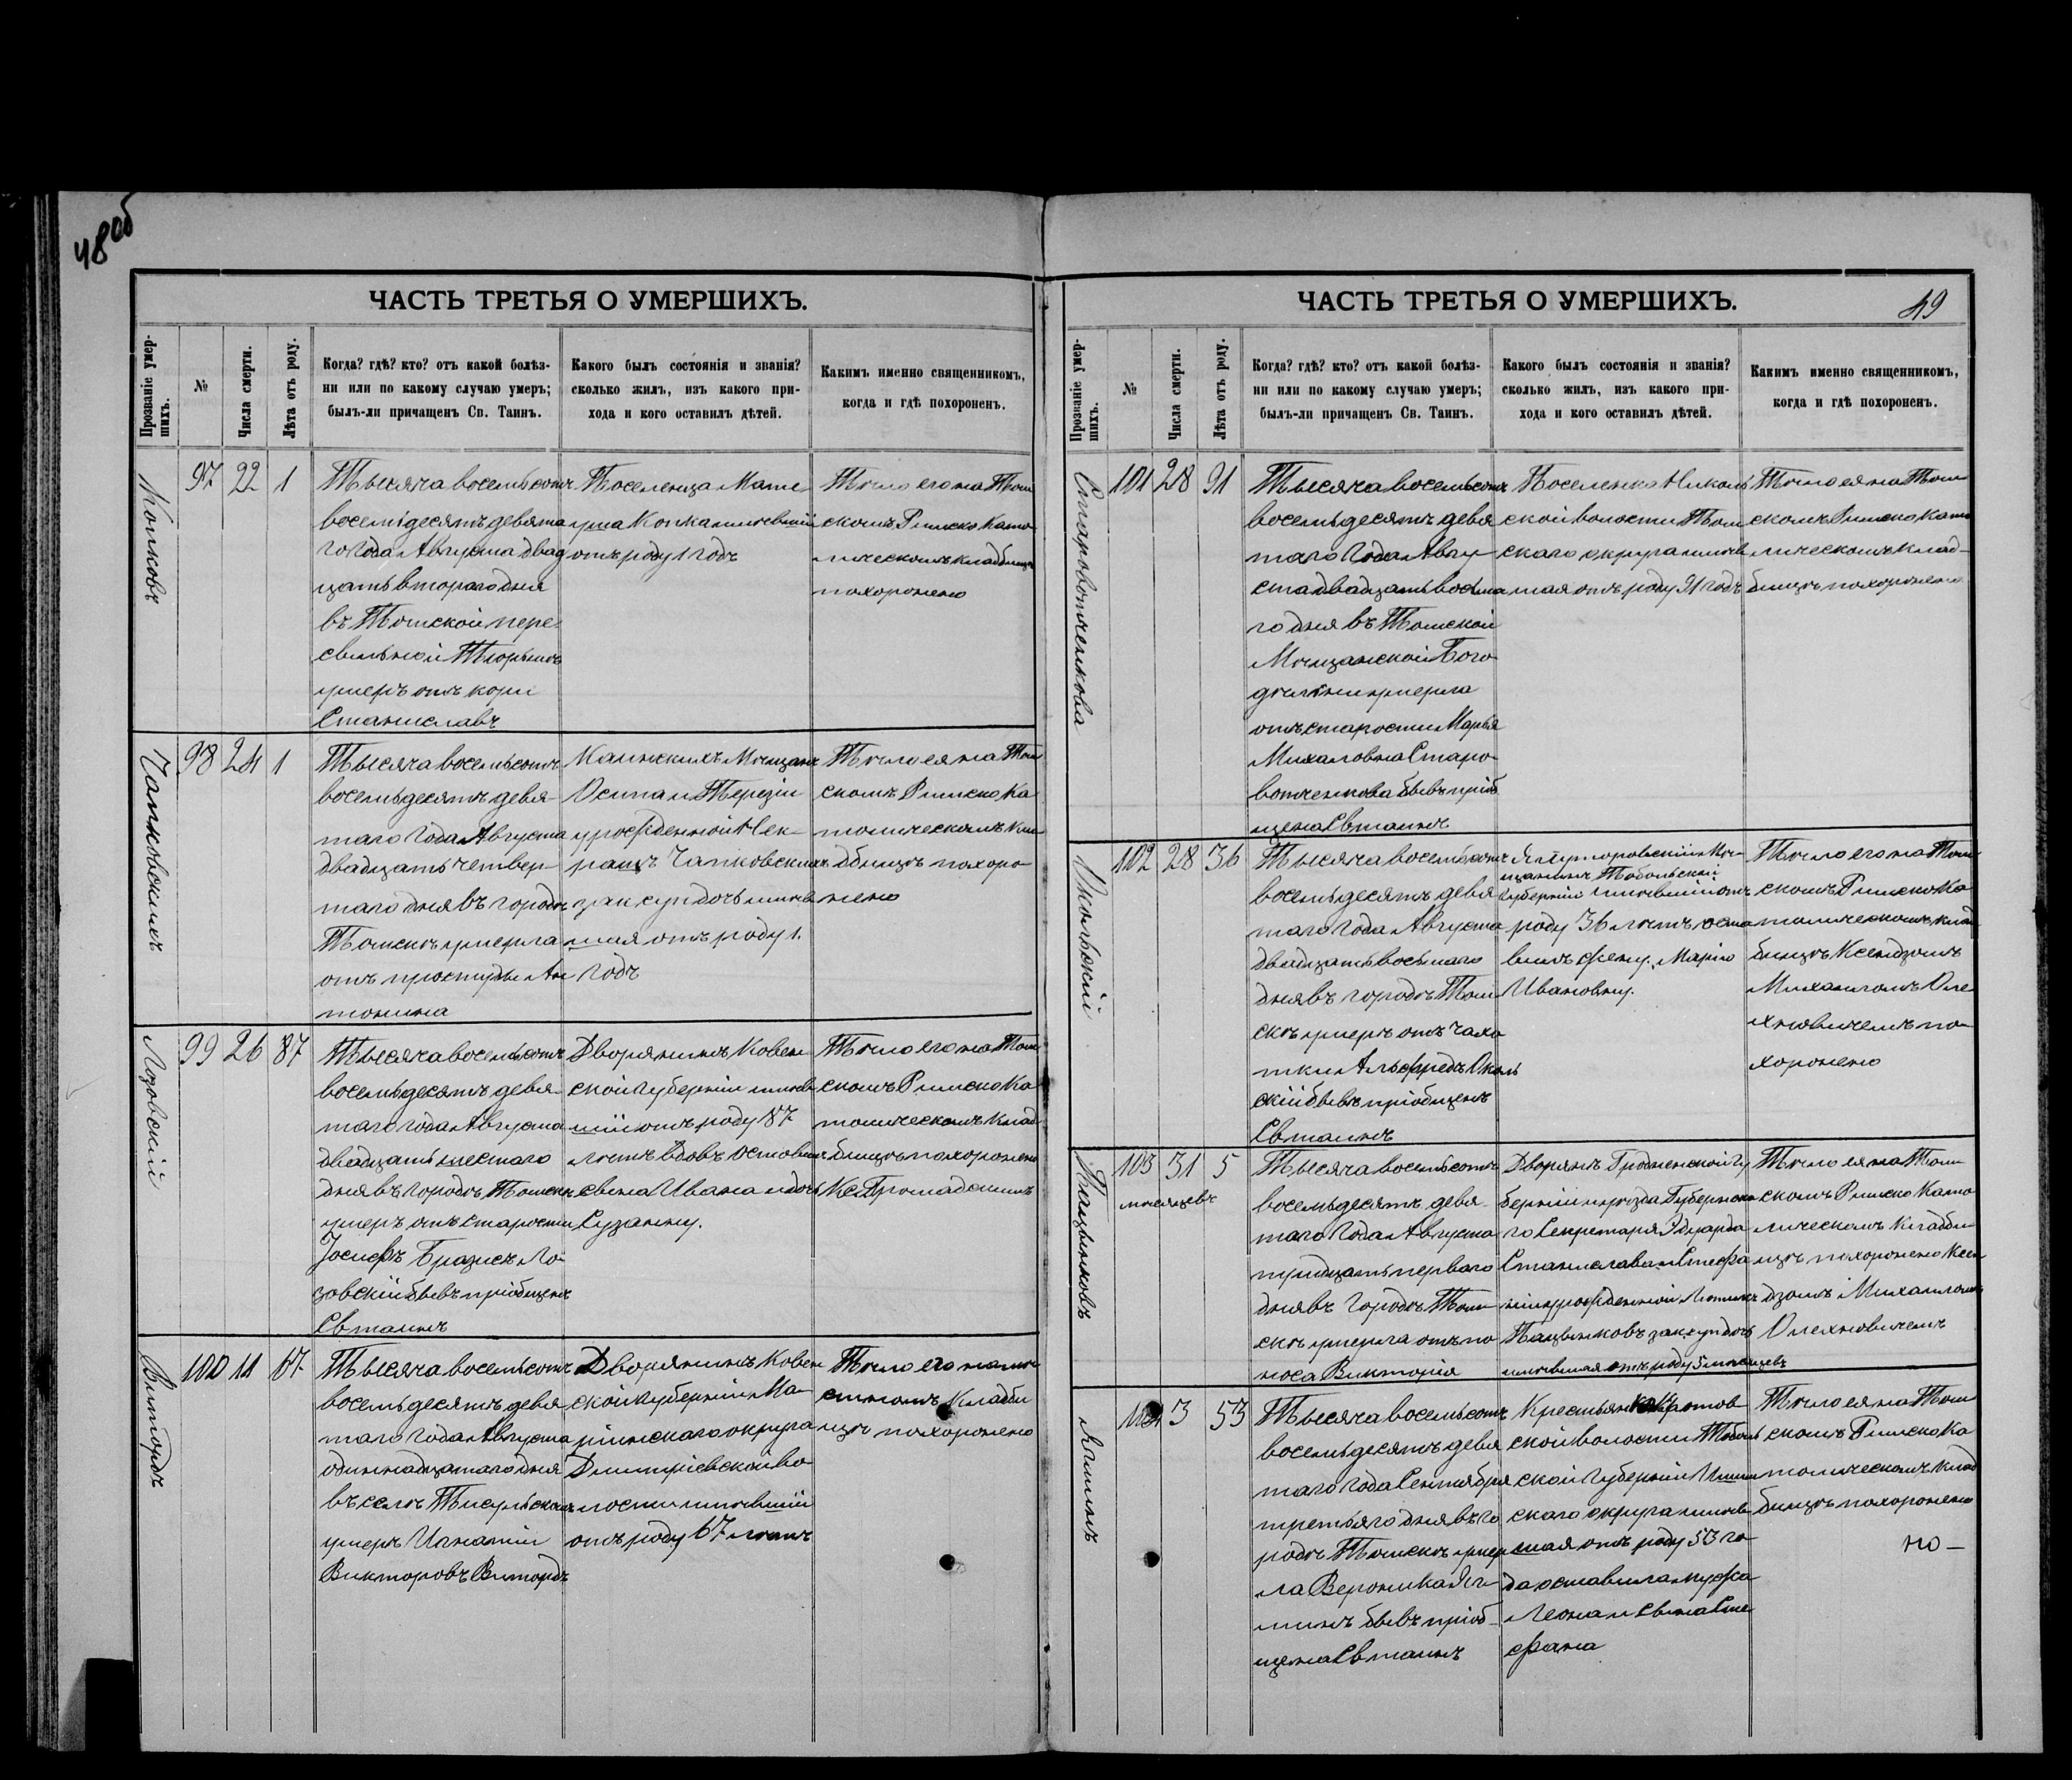 48об
ЧАСТЬ ТРЕТЬЯ О УМЕРШИХЪ.
Прозваніе умер-
шихъ.
№
Числа смерти.
Лѣта отъ роду.
Когда? гдѣ? кто? отъ какой болѣз-
ни или по какому случаю умеръ;
былъ-ли причащенъ Св. Таинъ.
Какого былъ состоянія и званія?
сколько жилъ, изъ какого при-
хода и кого оставилъ дѣтей.
Какимъ именно священникомъ,
когда и гдѣ похороненъ.
97
22
1
Тысяча восемьсотъ
восемьдесятъ девята
го года Августа двад
цать втораго дня
въ Томской пере
сыльной Тюрьмѣ
умеръ отъ кори
Станиславъ
Поселенца Мате
уша
отъ роду 1 годъ
Тѣло его на Том
скомъ Римско Като
лическомъ кладбищѣ
похоронено
98
24
1
Тысяча восемьсотъ
восемьдесятъ девя
таго года Августа
двадцать четвер
таго дня въ городѣ
Томскѣ умерла
отъ простуды Ан
тонина
Каинскихъ Мѣщанъ
Осипа и Терезіи
урожденной Нек-
рашъ Чапковскихъ
зак. супр. дочь жив
шая отъ роду 1.
годъ
Тѣло ея на Том
скомъ Римско Ка
толическомъ кла
дбищѣ похоро
нено
Лозовскій
99
26
87
Тысяча восемьсотъ
восемьдесятъ девя
таго года Августа
двадцать шестаго
дня въ городѣ Томскѣ
умеръ отъ старости
Іосифъ Бразисъ Ло
зовскій бывъ пріобщенъ
Св таинъ
Дворянинъ Ковен
ской губерніи жив
шій отъ роду 87
лѣтъ вдовъ оставилъ
сына Ивана и дочь
Сузанну.
Тѣло его на Том
скомъ Римско Ка
толическомъ клад
бищѣ похоронено
Кс. Громадскимъ
Витордъ
100
11
67
Тысяча восемьсотъ
восемьдесятъ девя
таго года Августа
одиннадцатаго дня
въ селѣ Тисульскомъ
умеръ Игнатій
Викторовъ Витордъ
Дворянинъ Ковен
ской губерніи Ма
ріинскаго округа
Дмитріевской во
лости жившій
отъ роду 67 лѣтъ
Тѣло его на мѣ
стномъ кладби
щѣ похоронено
ЧАСТЬ ТРЕТЬЯ О УМЕРШИХЪ.
49
Прозваніе умер-
шихъ.
№
Числа смерти.
Лѣта отъ роду.
Когда? гдѣ? кто? отъ какой болѣз-
ни или по какому случаю умеръ;
былъ-ли причащенъ Св. Таинъ.
Какого былъ состоянія и званія?
сколько жилъ, изъ какого при-
хода и кого оставилъ дѣтей.
Какимъ именно священникомъ,
когда и гдѣ похороненъ.
Старовотченкова
101
28
91
Тысяча восемьсотъ
восемьдесятъ девя
таго года Авгу
ста двадцать восьма
го дня въ Томской
Мѣщанской Бого
дѣльни умерла
отъ старости Марья
Михаловна Старо
вотченкова бывъ пріоб
щена Св таинъ
Поселенка Николь
ской волости Том
скаго округа жив
шая отъ роду 91 годъ
Тѣло ея на Том
скомъ Римско Като
лическомъ клад
бищѣ похоронено
102
28
36
Тысяча восемьсотъ
восемьдесятъ девя
таго года Августа
двадцать восьмаго
дня въ городѣ Том
скѣ умеръ отъ чахо
тки Альфредъ
бывъ пріобщенъ
Св таинъ
Ялуторовскій Мѣ
щанинъ Тобольской
губерніи жившій отъ
роду 36 лѣтъ оста
вилъ жену Марію
Ивановну.
Тѣло его на Том
скомъ Римско Ка
толическомъ клад
бищѣ Ксендзомъ
Михаиломъ Оле
хновичемъ по
хоронено
Пацынковъ
103
31
5
мѣсяцевъ
Тысяча восемьсотъ
восемьдесятъ девя
таго года Августа
тридцать перваго
дня въ городѣ Том
скѣ умерла отъ по
носа Викторія
Дворянъ Гродненской Гу
берніи и уѣзда Губернска
го Секретаря Эдуарда
Станислава и Стефа
ніи урожденной
Пацынковъ зак. супр. дочь
жившая отъ роду 5 мѣсяцевъ
Тѣло ея на Том
скомъ Римско Като
лическомъ кладби
щѣ похоронено Ксен
дзомъ Михаиломъ
Олехновичемъ
Ягминъ
104
3
53
Тысяча восемьсотъ
восемьдесятъ девя
таго года Сентября
третьяго дня въ го
родѣ Томскѣ умер
ла Вероника Яг
минъ бывъ пріоб
щена Св таинъ
Крестьянка Кротов
ской волости Тоболь
ской губерніи Ишим
скаго округа жив
шая отъ роду 53 го
да оставила мужа
Леона и сына Сте
фана
Тѣло ея на Том
скомъ Римско Ка
толическомъ клад
бищѣ похоронено
но-